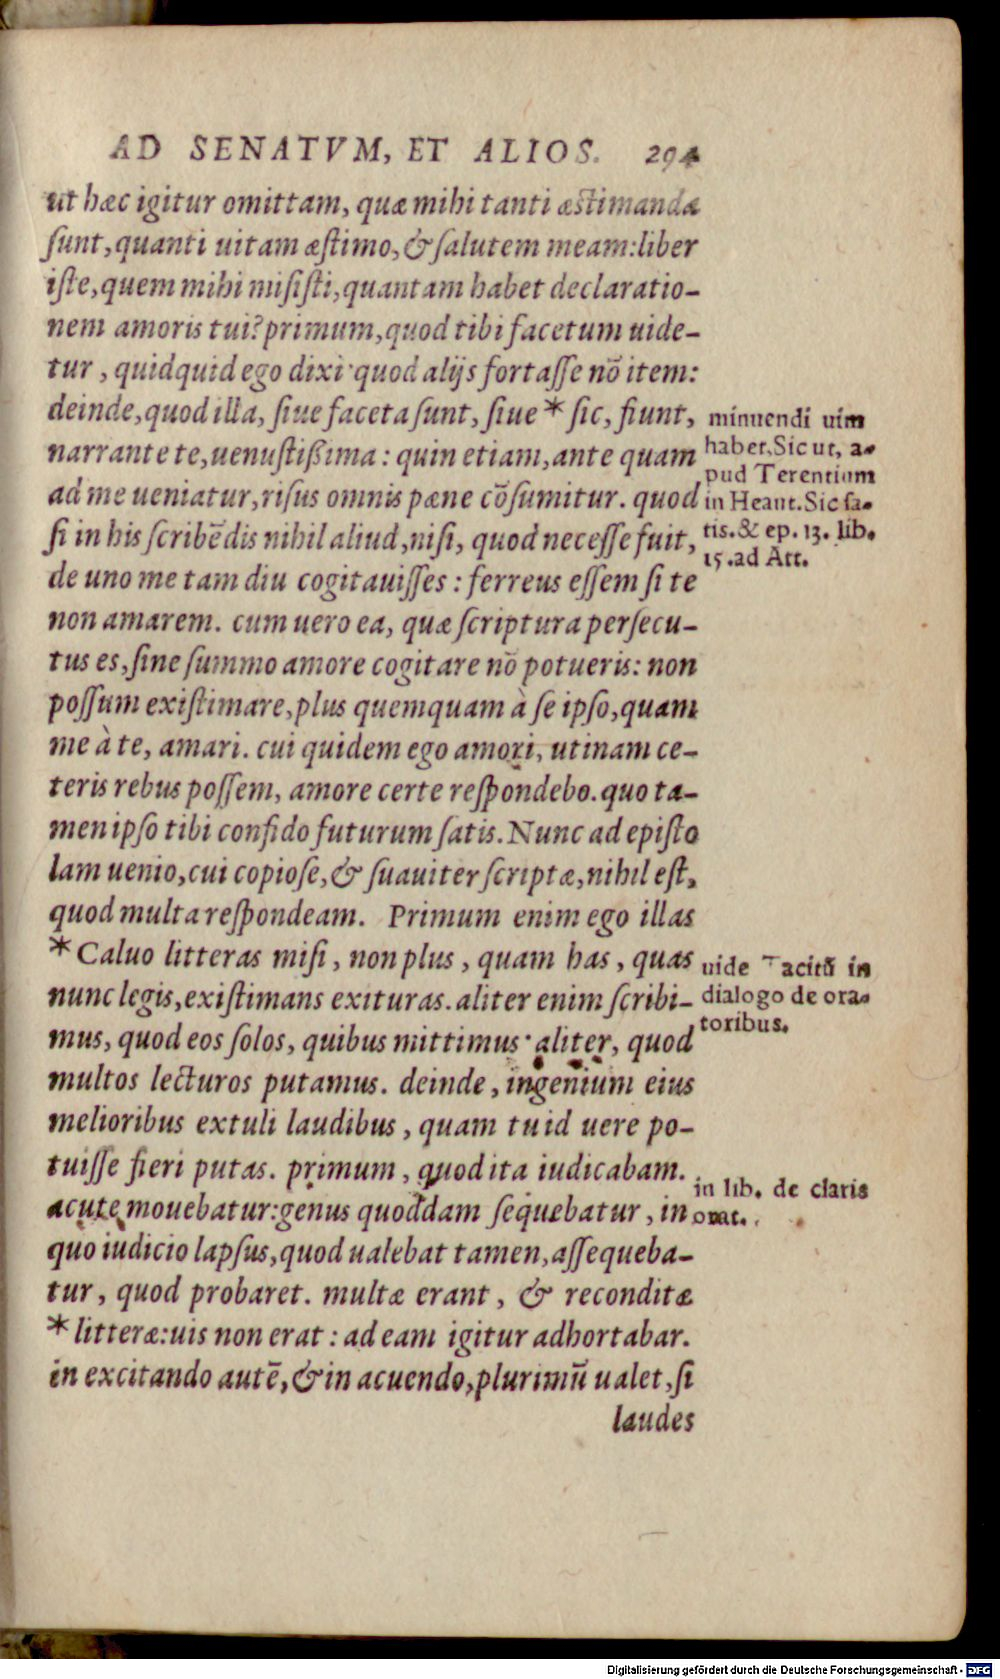 AD SENATVM, ET ALIOS. 294
ut hæc igitur omittam, quæ mihi tanti æstimanda
sunt, quanti uitam æstimo, & salutem meam: liber
iste, quem mihi misisti, quantam habet declaratio-
nem amoris tui? primum, quod tibi facetum uide-
tur, quidquid ego dixi· quod alijs fortasse nõ item:
deinde, quod illa, siue faceta sunt, siue * sic, fiunt,
narrante te, uenustißima: quin etiam, ante quam
ad me ueniatur, risus omnis pæne cõsumitur. quod
si in his scribẽdis nihil aliud, nisi, quod necesse fuit,
de uno me tam diu cogitauisses: ferreus essem si te
non amarem. cum uero ea, quæ scriptura persecu-
tus es, sine summo amore cogitare nõ potueris: non
possum existimare, plus quemquam à se ipso, quam
me à te, amari. cui quidem ego amori, utinam ce-
teris rebus possem, amore certe respondebo. quo ta-
men ipso tibi confido futurum satis. Nunc ad episto
lam uenio, cui copiose, & suauiter scriptæ, nihil est,
quod multa respondeam. Primum enim ego illas
* Caluo litteras misi, non plus, quam has, quas
nunc legis, existimans exituras. aliter enim scribi-
mus, quod eos solos, quibus mittimus· aliter, quod
multos lecturos putamus. deinde, ingenium eius
melioribus extuli laudibus, quam tu id uere po-
tuisse fieri putas. primum, quod ita iudicabam.
acute mouebatur: genus quoddam sequebatur, in
quo iudicio lapsus, quod ualebat tamen, assequeba-
tur, quod probaret. multæ erant, & reconditæ
* litteræ: uis non erat: ad eam igitur adhortabar.
in excitando autẽ, & in acuendo, plurimũ ualet, si
laudes
minuendi uim
habet, Sic ut, a-
pud Terentium
in Heaut. Sic sa-
tis. & ep. 13. lib.
15. ad Att.
uide Tacitũ in
dialogo de ora-
toribus.
in lib. de claris
orat.
Digitalisierung gefördert durch die Deutsche Forschungsgemeinschaft - DFG